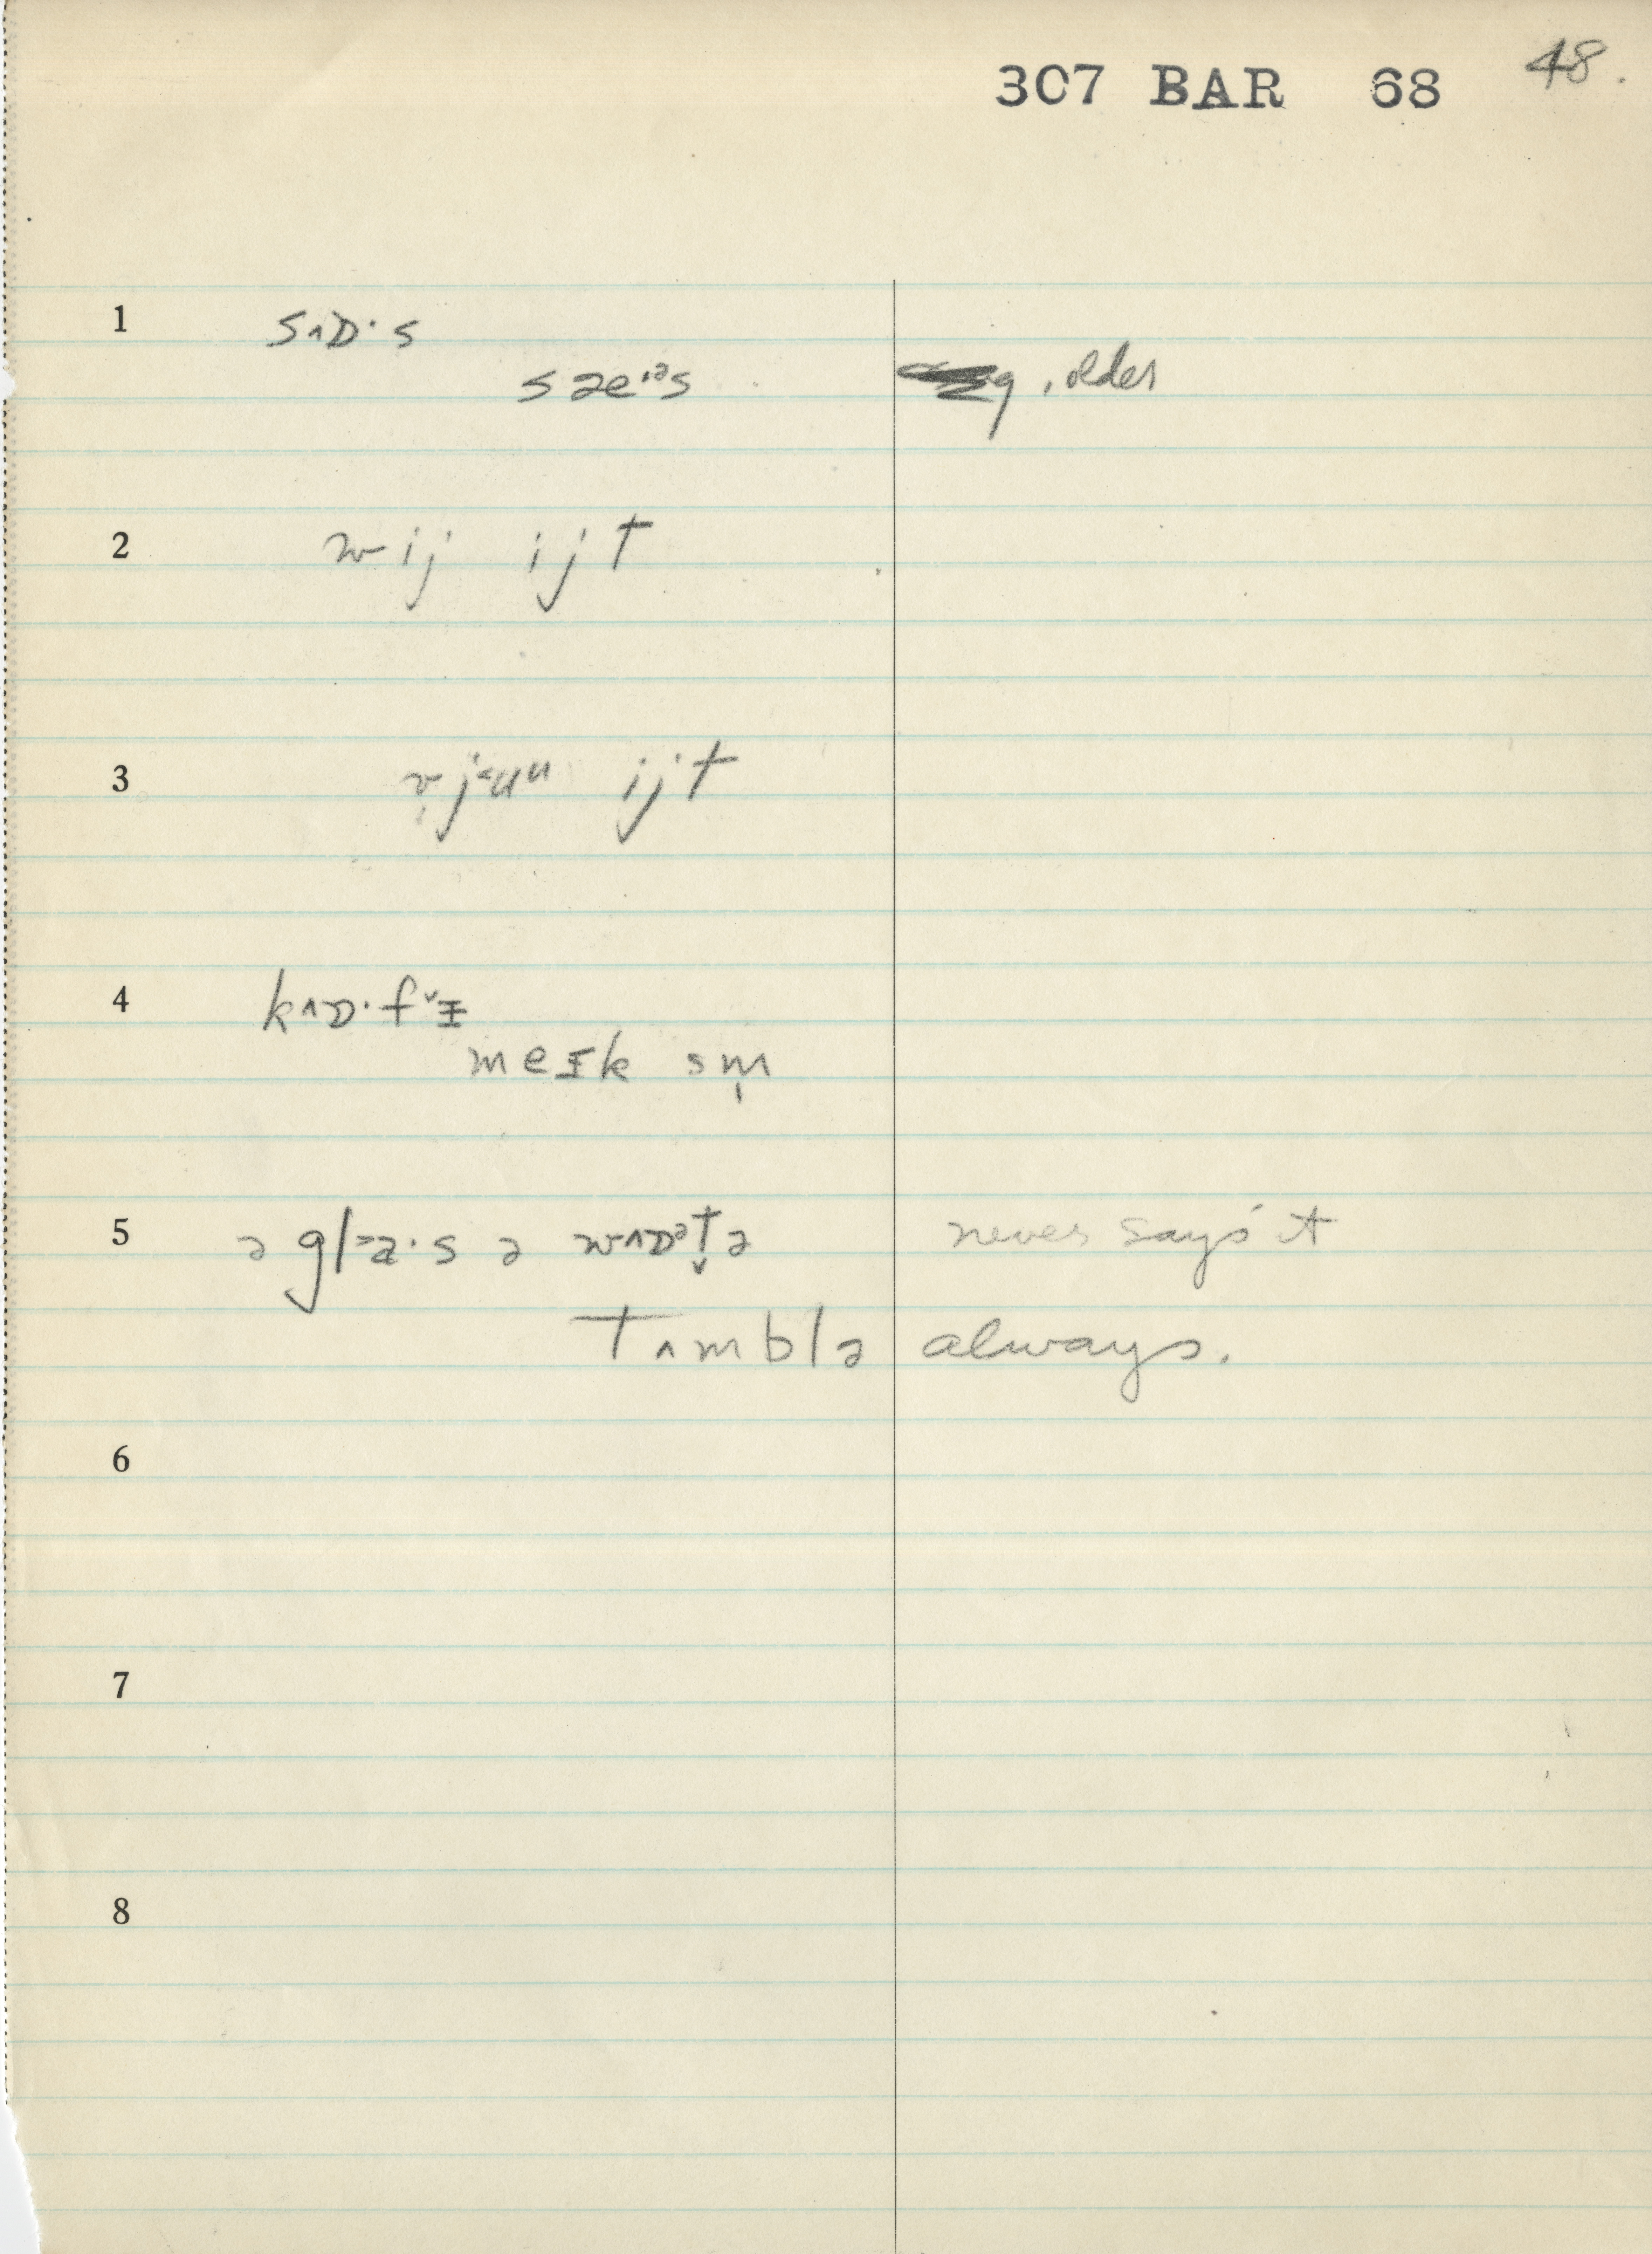 307 BAR 68 48.
1 sʌɒ·s
sae·ᵊs q, older
2 wij ijt
3 ijt
4 kʌɒ·fᵛɪ
meɪk sm̩
5 ə gl˃a·s ə wʌɒᵊt̬ə never says it
Tʌmblə always.
6
7
8